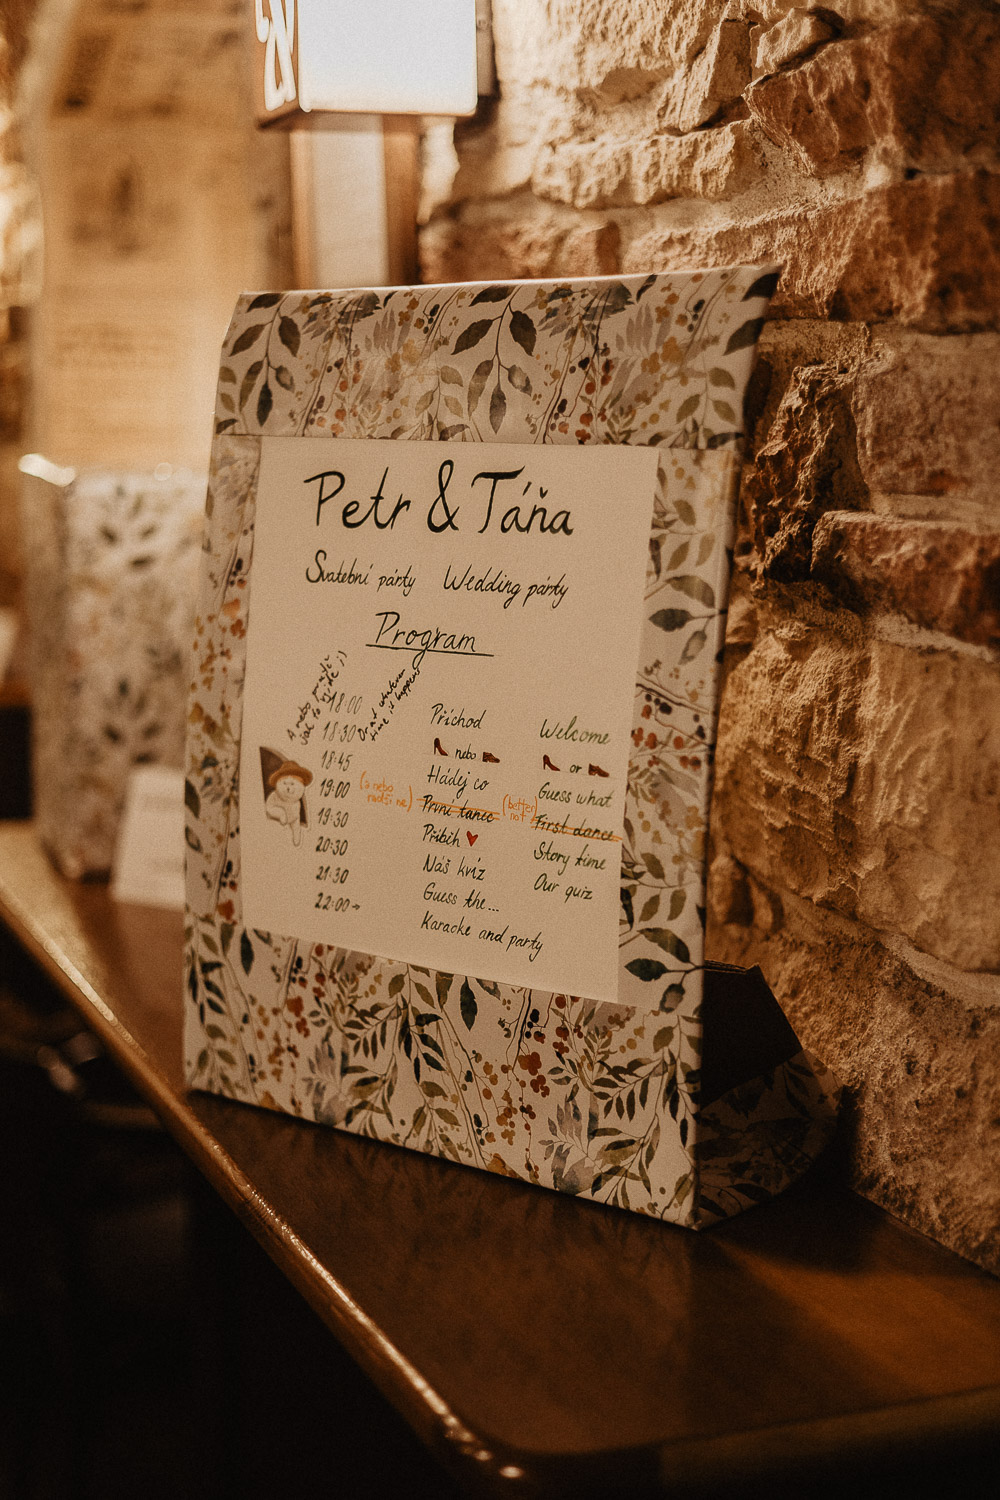 Petr & Táňa
Svatební párty Wedding párty
Program
A nebo později
jak to vyjde ;)
Or at whatever
time it happens
18:00 Příchod Welcome
18:30 nebo or
18:45 Hádej co Guess what
19:00 (a nebo radši ne) První tanec (better not) First dance
19:30 Příběh ♥ Story time
20:30 Náš kvíz Our quiz
21:30 Guess the...
22:00→ Karaoke and party